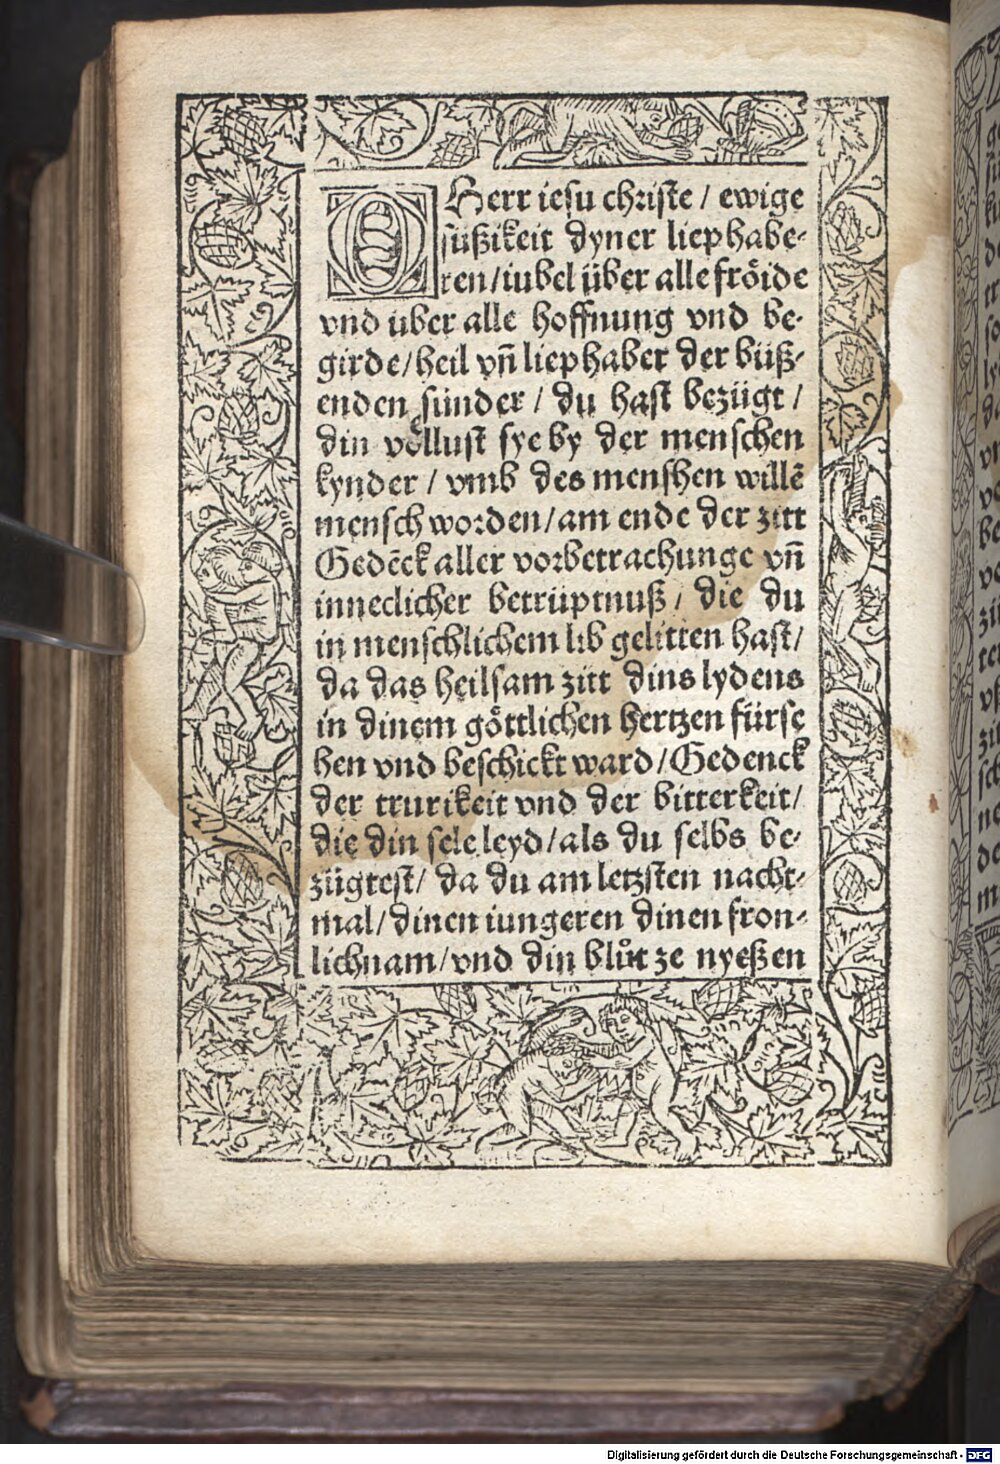 O Herr iesu christe / ewige
süßikeit dyner liephabe-
ren / iubel über alle fröide
vnd über alle hoffnung vnd be-
girde / heil vñ liephaber der büß-
enden sünder / du hast bezügt /
din vollust sye by der menschen
kynder / vmb des menshen willē
mensch worden / am ende der zitt
Gedēck aller vorbetrachunge vñ
inneclicher betrüptnuß / die du
in menschlichem lib gelitten hast /
da das heilsam zitt dins lydens
in dinem göttlichen hertzen fürse
hen vnd beschickt ward / Gedenck
der trurikeit vnd der bitterkeit /
die din sele leyd / als du selbs be-
zügtest / da du am letzsten nacht-
mal / dinen iungeren dinen fron-
lichnam / vnd din blůt ze nyeßen
Digitalisierung gefördert durch die Deutsche Forschungsgemeinschaft - DFG